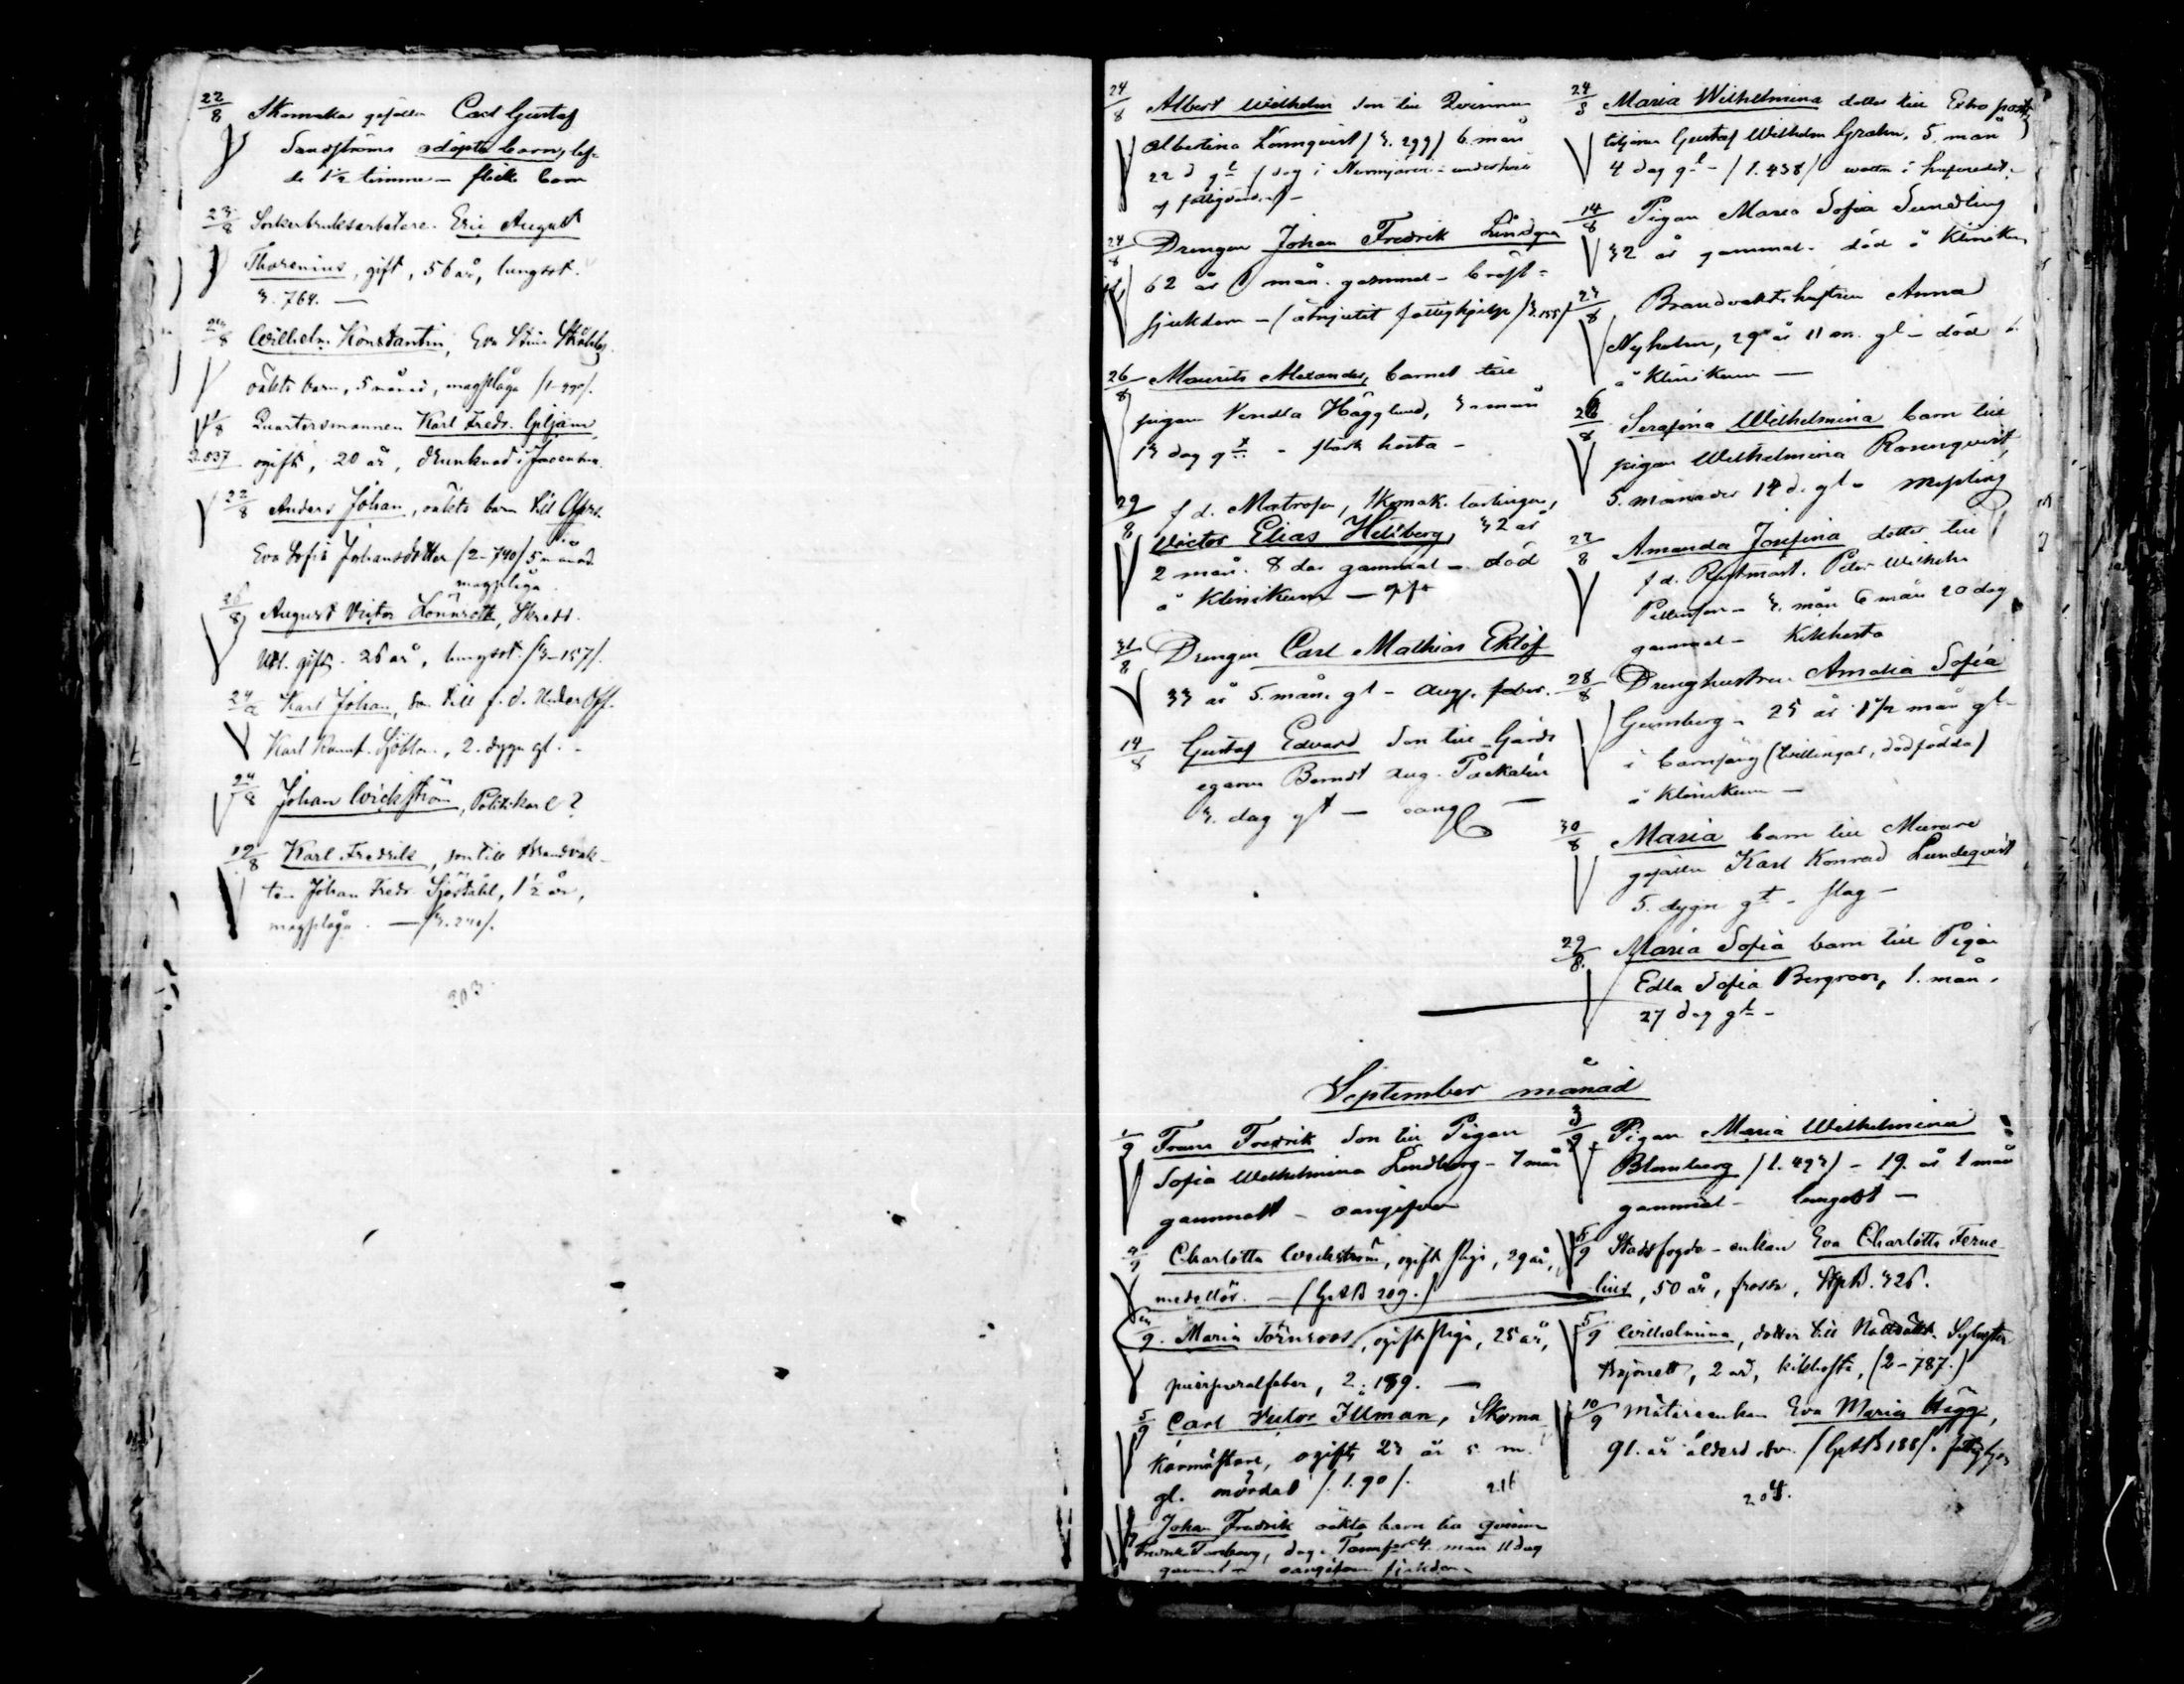 22/8 Skomakar gesällen Carl Gustaf
Sandströms odöpta barn, lef-
de 1½ timme — flicke barn
23/8 Sockerbruksarbetare Eric August
Thorenius, gift, 56 år, lungsot.
3. 764. —
8 Wilhelm Konstantin, Eva Stina
oäkta barn, 5 månad, magplåga
8 Quartersmannen Karl Fredr.
2.537 ogift, 20 år, drunknad i
22/8 Anders Johan, oäkta barn till
Eva Sofia Johansdotter (2-740) 5 månad
magplåga.
28/8 August Victor Lönnroth, Skredd.
gift. 26 år, lungsot. (3-157).
24 Karl Johan, son till f. d. Under Off.
Karl Sjöblom, 2. dygn gl. -
24/8 Johan Wickström, Politikarl?
19/8 Karl Fredrik, son till Brandvak-
ten Johan Fredr. Sjöstähl, 1½ år,
magplåga. — (3.240).
203.
24/8 Albert Wilhelm Son till Qvinnan
Albertina Lönnqvist (3. 299) 6 mån
22 d gt (dog i Nurmijärvi: underhöll
af fattigvården) -
24/8 Drengen Johan Fredrik Lindgren
62 år mån. gammal - bröst-
sjukdom - (åtnjutit fattighjelp) 3.155)
26/8 Maurits Alexander, barnet till
pigan Vendla Hägglund, 3 mån
13 dag gt - stark hosta -
29/8 f d. Matrosen, Skomak. lärlingen,
Victor Elias Hellberg, 32 år
2 mån. 8 dar gammal - död
å Klinikum — gift
31/8 Drengen Carl Mathias Eklöf
33 år 5. mån. gl - feber.
14/8 Gustaf Edvard Son till Gårds
egaren Berndt Aug. Packalén
3. dag gt — oang —
24/8 Maria Wilhelmina dotter till Extra post
tiljonen Gustaf Wilhelm Grahn, 5. mån
4 dag gt - (1. 438) watten i hufvudet. -
14/8 Pigan Maria Sofia Sundling
32 år gammal - död å Kliniken
23/8 Brandvaktshustrun Anna
Nyholm, 29 år 11 m. gl - död
å Klinikum —
26/8 Serafina Wilhelmina barn till
pigan Wilhelmina Rosenqvist,
5. månader 14 d. gl - messling
22/8 Amanda Josefina dotter till
f d. Rustmäst. Peter Wilhelm
Pettersson - 3. mån 6 mån 20 dag
gammal - Kikhosta
28/8 Drenghustrun Amalia Sofia
Grunsberg - 25 år 1½ mån gl -
i barnsäng (tvillingar, dödfödda)
å Klinikum —
30/8 Maria barn till Murare
gesällen Karl Konrad Lundeqvist
5. dygn gt - slag -
29/8. Maria Sofia barn till Pigan
Edla Sofia Bergroos, 1. mån.
27 dag gt -
September månad
1/9 Frans Fredrik Son till Pigan
Sofia Wilhelmina Lindberg - 7 mån
gammalt - oangifven
4/9 Charlotta Wickström, ogift piga, 29 år,
medellös. — (GAB 209.)
9. Maria Törnroos, ogift piga, 25 år,
puerperalfeber, 2. 189. —
5/9 Carl Victor Illman, Skoma
karmästare, ogift, 23 år 5 m.
gl. mördad? (. 1.90 (.
216
Johan Fredrik oäkta barn till qvinnan
Torsberg, dag. 4. mån 11 dag
gammal - oangifven sjukdom -
3/9 Pigan Maria Wilhelmina
Blomberg (1. 493) - 19. år 1 mån
gammal - lungsot —
5/9 Stadsfogde-enkan Eva Charlotte Ferne-
lius, 50 år, frossa, 326.
5/9 Wilhelmina, dotter till Sylvester
Bajonett, 2 år, kikhosta, (2-787.)
10/9 Mätareenkan Eva Maria Hägg,
91. år ålderd. (GAB 188).
204.